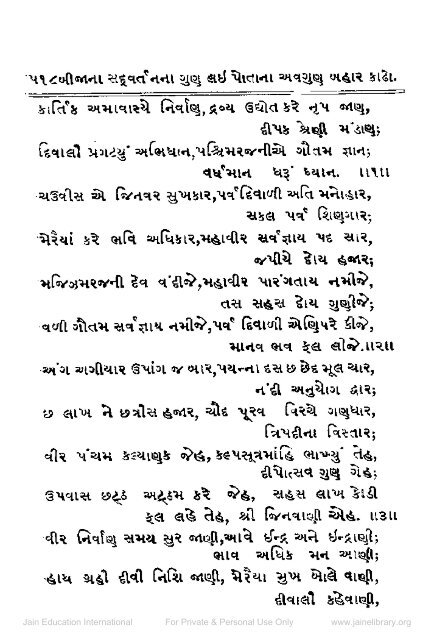 ૫૧૮બીજાના સદ્વર્તનના ગુણ લઇ પોતાના અવગુણ બહાર કાઢો.
કાર્તિક અમાવાસ્યે નિર્વાણ, દ્રવ્ય ઉદ્યોત કરે નૃપ જાણ,
દીપક શ્રેણી મંડાણ;
દિવાલી પ્રગટયું અભિધાન,પશ્ચિમરજનીએ ગૌતમ જ્ઞાન;
વર્ધમાન ધરૂં ધ્યાન. ॥૧॥
ચઉવીસ એ જિનવર સુખકાર,પર્વ દિવાળી અતિ મનોહાર,
સકલ પર્વ શિણગાર;
મેરૈયાં કરે ભવિ અધિકાર,મહાવીર સર્વજ્ઞાય પદ સાર,
જપીયે દોય હજાર;
મજિઝમરજની દેવ વંદીજે,મહાવીર પારંગતાય નમીજે,
તસ સહસ દોય ગુણીજે;
વળી ગૌતમ સર્વજ્ઞાય નમીજે,પર્વ દિવાળી એણિપરે કીજે,
માનવ ભવ ફલ લીજે.॥૨॥
અંગ અગીયાર ઉપાંગ જ બાર,પયન્ના દસ છ છેદ મૂલ ચાર,
નંદી અનુયોગ દ્વાર;
છ લાખ ને છત્રીસ હજાર, ચૌદ પૂરવ વિરચે ગણધાર,
ત્રિપદીના વિસ્તાર;
વીર પંચમ કલ્યાણક જેહ, કલ્પસૂત્રમાંહિ ભાખ્યું તેહ,
દીપોત્સવ ગુણ ગેહ;
ઉપવાસ છટ્ઠ અટ્ઠમ કરે જેહ, સહસ લાખ કોડી
ફલ લહે તેહ, શ્રી જિનવાણી એહ. ॥૩॥
વીર નિર્વાણ સમય સુર જાણી,આવે ઈન્દ્ર અને ઈન્દ્રાણી;
ભાવ અધિક મન આણી;
હાથ ગ્રહી દીવી નિશિ જાણી, મેરૈયા મુખ બોલે વાણી,
દીવાલી કહેવાણી,
Jain Education International For Private & Personal Use Only www.jainelibrary.org